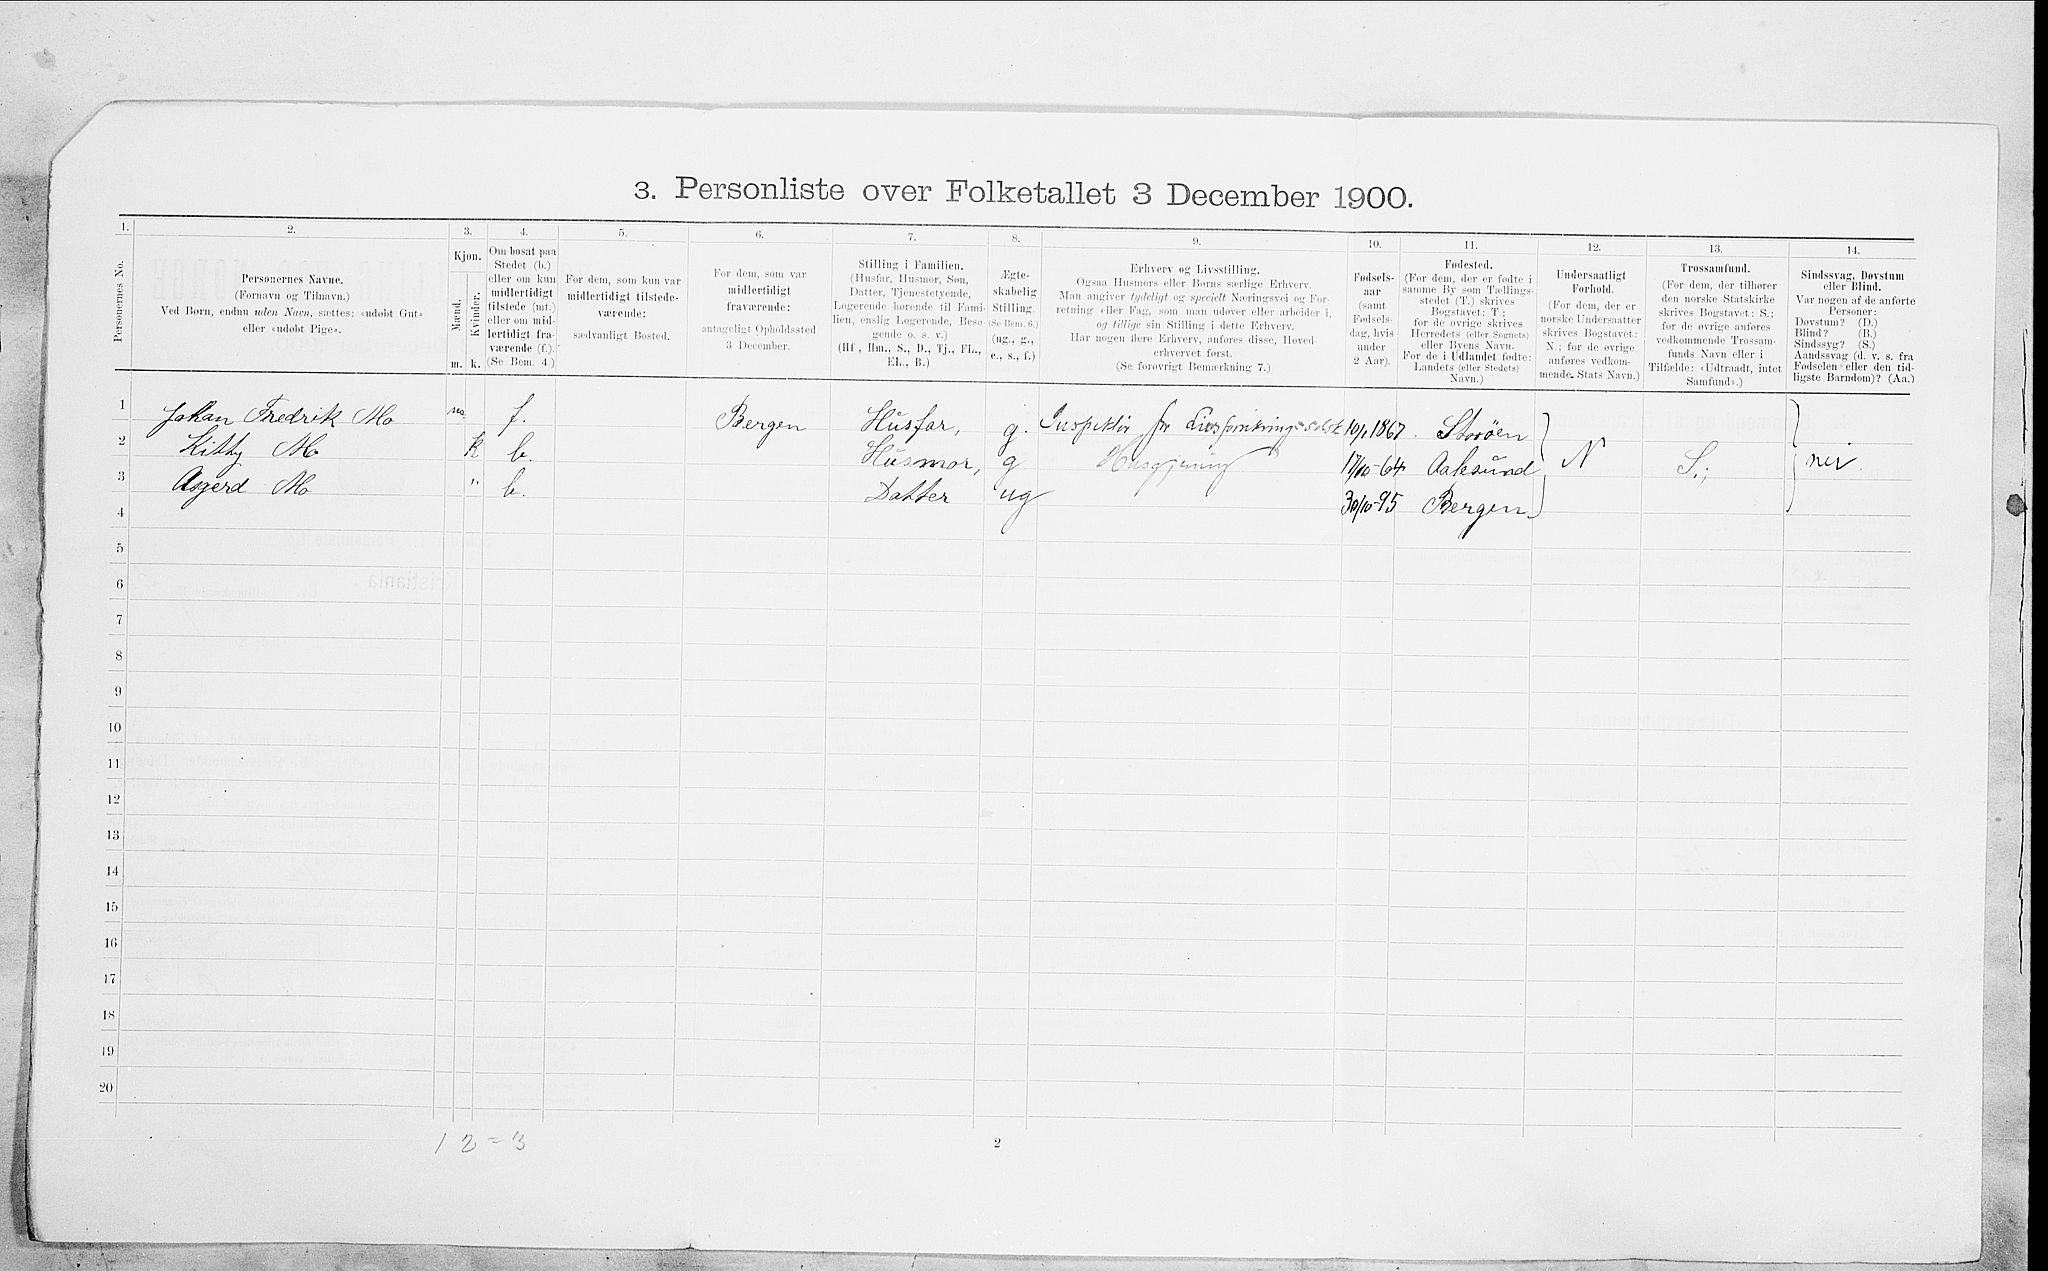 3. Personliste over Folketallet 3 December 1900.
1. 2. 3. 4. 5. 6. 7. 8. 9. 10. 11. 12. 13. 14.
Personernes No.
Personernes Navne.
(Fornavn og Tilnavn.)
Ved Børn, endnu uden Navn, sættes: «udøbt Gut»
eller «udøbt Pige».
Kjøn.
Mænd.
Kvinder.
m. k.
Om bosat paa
Stedet (b.)
eller om kun
midlertidigt
tilstede (mt.)
eller om mid-
lertidigt fra-
værende (f.)
(Se Bem. 4.)
For dem, som kun var
midlertidigt tilstede-
værende:
sædvanligt Bosted.
For dem, som var
midlertidigt
fraværende:
antageligt Opholdssted
3 December.
Stilling i Familien.
(Husfar, Husmor, Søn,
Datter, Tjenestetyende,
Logerende hørende til Fami-
lien, enslig Logerende, Besø-
gende o. s. v.)
(Hf., Hm., S., D., Tj., FL.,
EL., B.)
Ægte-
skabelig
Stilling.
(Se Bem. 6.)
(ug., g.,
e., s., f.)
Erhverv og Livsstilling.
Ogsaa Husmors eller Børns særlige Erhverv.
Man angiver tydeligt og specielt Næringsvei og For-
retning eller Fag, som man udøver eller arbeider i,
og tillige sin Stilling i dette Erhverv.
Har nogen flere Erhverv, anføres disse, Hoved-
erhvervet først.
(Se forøvrigt Bemærkning 7.)
Fødsels-
aar
(samt
Fødsels-
dag, hvis
under
2 Aar).
Fødested.
(For dem, der er fødte i
samme By som Tællings-
stedet (T.) skrives
Bogstavet: T;
for de øvrige skrives
Herredets (eller Sognets)
eller Byens Navn.
For de i Udlandet fødte:
Landets (eller Stedets)
Navn.)
Undersaatligt
Forhold.
(For dem, der er
norske Undersaatter
skrives Bogstavet:
N.; for de øvrige
anføres vedkom-
mende Stats Navn.)
Trossamfund.
(For dem, der tilhører
den norske Statskirke
skrives Bogstavet: S.;
for de øvrige anføres
vedkommende Trossam-
funds Navn eller i
Tilfælde: «Udtraadt, intet
Samfund».)
Sindssvag, Døvstum
eller Blind.
Var nogen af de anførte
Personer:
Døvstum? (D.)
Blind? (B.)
Sindssyg? (S.)
Aandssvag (d. v. s. fra
Fødselen eller den tid-
ligste Barndom)? (Aa.)
1 Johan Fredrik Mo m. f. Bergen Husfar, g. Inspektør for Livsforsikrings 10/1 1867. Storøen
2 Kitty Mo k b. Husmor, g Husgjerning 17/10-64 Aalesund N S.; nei.
3 Asgerd Mo " b. Datter ug 30/10-95 Bergen
4
5
6
7
8
9
10
11
12
13
14
15
16
17
18
19
20
1 2 = 3
2